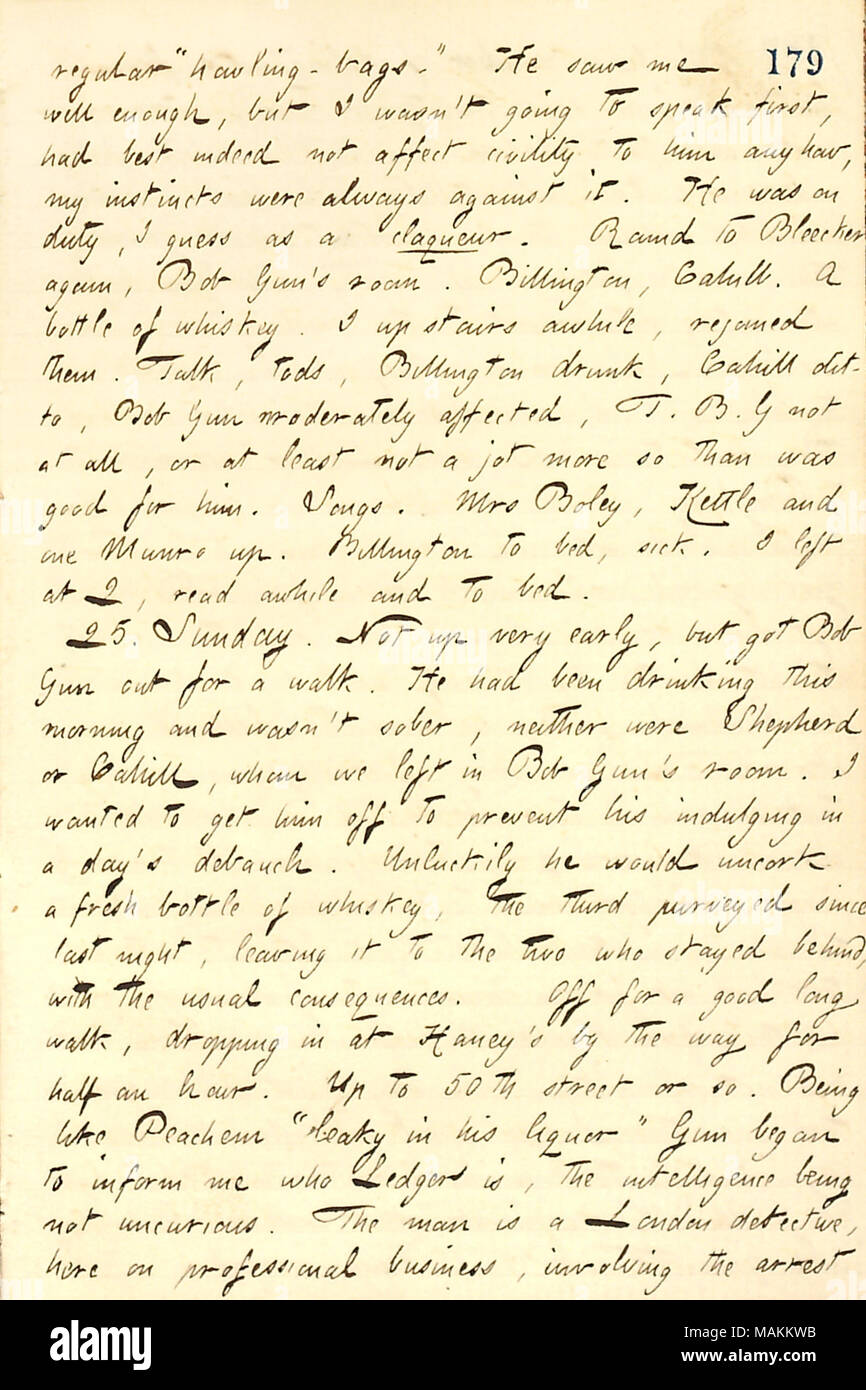 regular "howling-bags." He saw me 179
well enough, but I wasn't going to speak first,
had best indeed not affect civility to him anyhow,
my instincts were always against it. He was on
duty, I guess as a claqueur. Round to Bleecker
again, Bob Gun's room. Billington, Cahill. A
bottle of whiskey. I up stairs awhile, rejoined
them. Talk, tods, Billington drunk, Cahill dit-
to, Bob Gun moderately affected, T. B. G not
at all, or at least not a jot more so than was
good for him. Songs. Mrs Boley, Kettle and
one Munro up. Billington to bed, sick. I left
at 2, read awhile and to bed.
25. Sunday. Not up very early, but got Bob
Gun out for a walk. He had been drinking this
morning and wasn't sober, neither were Shepherd
or Cahill, whom we left in Bob Gun's room. I
wanted to get him off to prevent his indulging in
a day's debauch. Unluckily he would uncork
a fresh bottle of whiskey, the third purveyed since
last night, leaving it to the two who stayed behind,
with the usual consequences. Off for a good long
walk, dropping in at Haney's by the way for
half an hour. Up to 50th street or so. Being
like Peachem "leaky in his liquor" Gun began
to inform me who Ledger is, the intelligence being
not uncurious. The man is a London detective,
here on professional business, involving the arrest
alamy
Image ID: MAKKWB
www.alamy.com